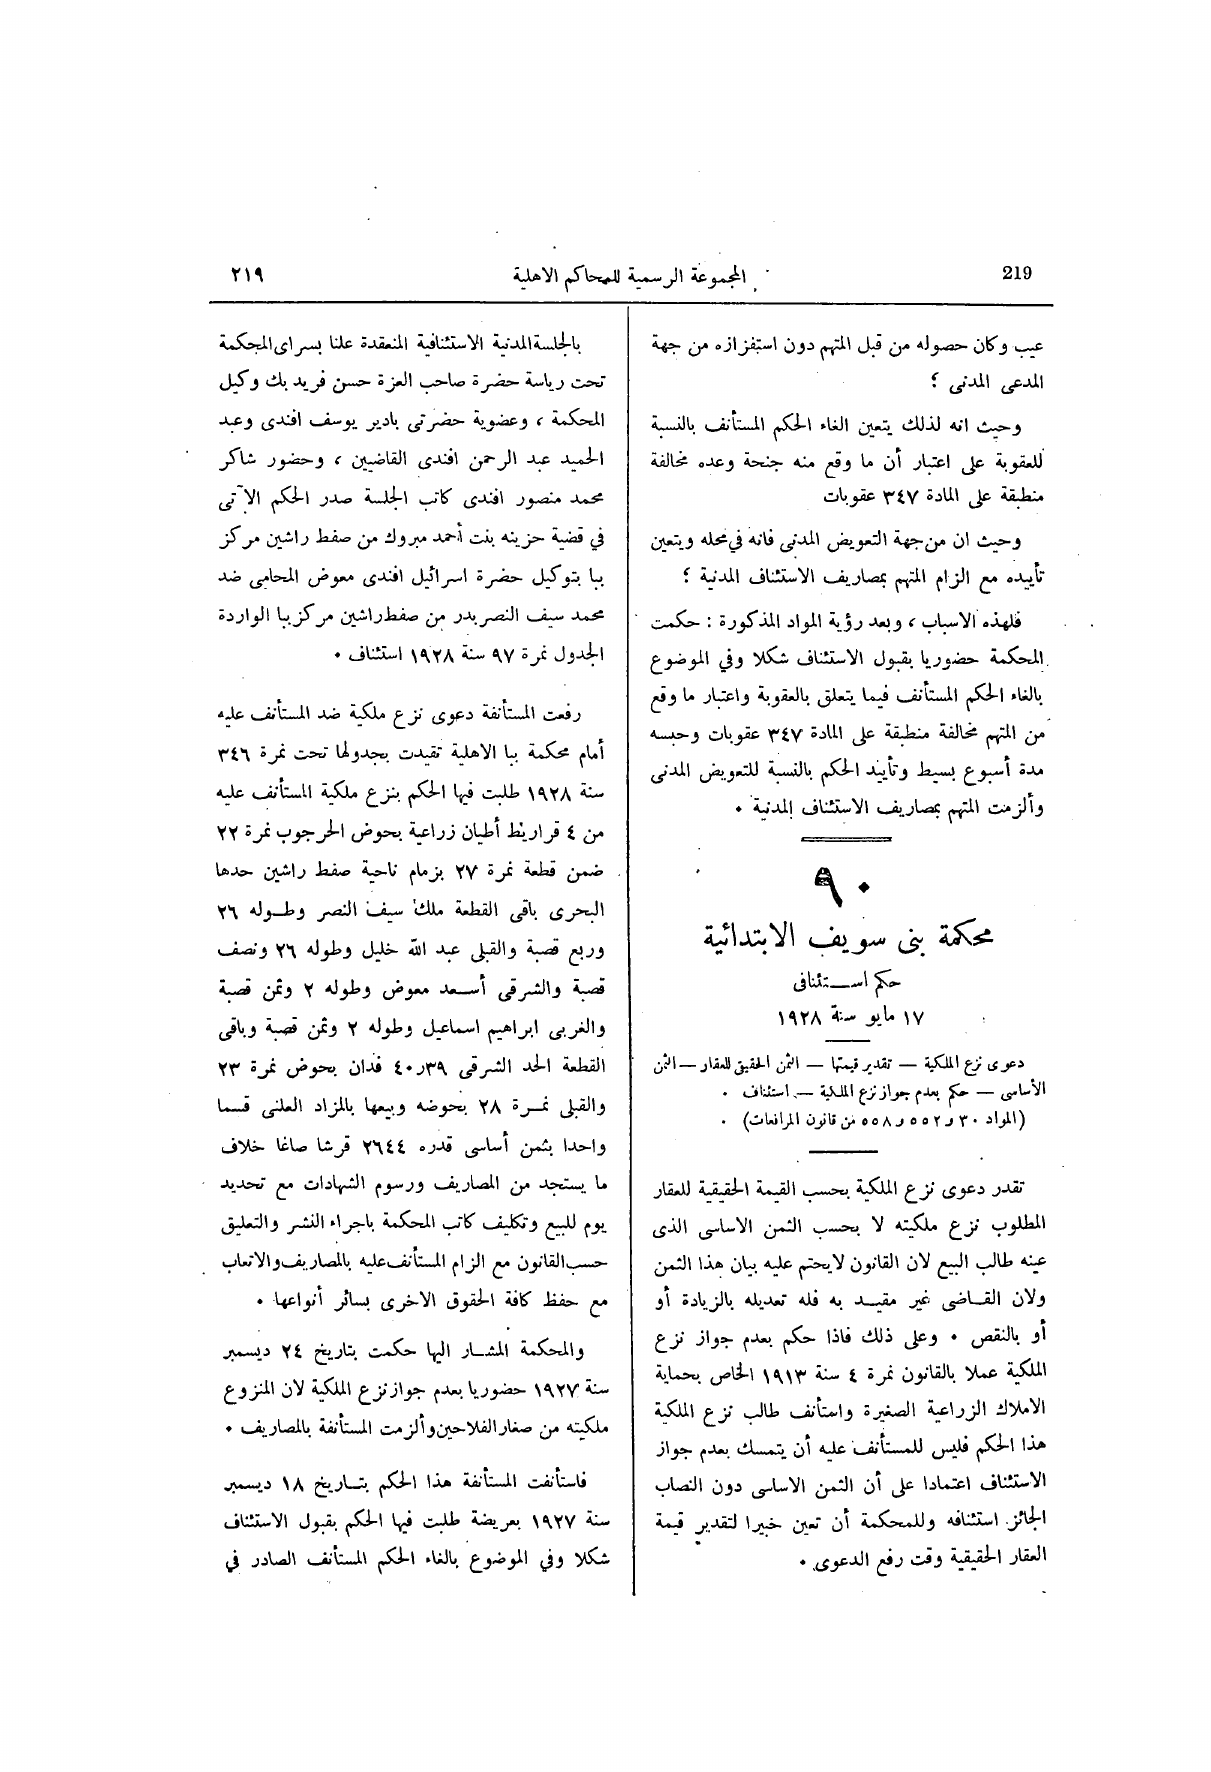 219
المجموعة الرسمية للمحاكم الاهلية
٢١٩
عيب وكان حصوله من قبل المتهم دون استفزازه من جهة
المدعى المدنى ؛
وحيث انه لذلك يتعين الغاء الحكم المستأنف بالنسبة
للعقوبة على اعتبار أن ما وقع منه جنحة وعده مخالفة
منطبقة على المادة ٣٤٧ عقوبات
وحيث ان من جهة التعويض المدنى فانه في محله ويتعين
تأييده مع الزام المتهم بمصاريف الاستئناف المدنية ؛
فلهذه الاسباب ، وبعد رؤية المواد المذكورة : حكمت
المحكمة حضوريا بقبول الاستئناف شكلا وفي الموضوع
بالغاء الحكم المستأنف فيما يتعلق بالعقوبة واعتبار ما وقع
من المتهم مخالفة منطبقة على المادة ٣٤٧ عقوبات وحبسه
مدة أسبوع بسيط وتأييد الحكم بالنسبة للتعويض المدنى
وألزمت المتهم بمصاريف الاستئناف المدنية ٠
٩٠
محكمة بنى سويف الابتدائية
حكم استئنافى
١٧ مايو سنة ١٩٢٨
دعوى نزع الملكية — تقدير قيمتها — الثمن الحقيقى للعقار — الثمن
الأساسى — حكم بعدم جواز نزع الملكية — استئناف ٠
(المواد ٣٠ و ٥٥٢ و ٥٥٨ من قانون المرافعات) ٠
تقدر دعوى نزع الملكية بحسب القيمة الحقيقية للعقار
المطلوب نزع ملكيته لا بحسب الثمن الاساسى الذى
عينه طالب البيع لان القانون لايحتم عليه بيان هذا الثمن
ولان القاضى غير مقيد به فله تعديله بالزيادة أو
أو بالنقص ٠ وعلى ذلك فاذا حكم بعدم جواز نزع
الملكية عملا بالقانون نمرة ٤ سنة ١٩١٣ الخاص بحماية
الاملاك الزراعية الصغيرة واستأنف طالب نزع الملكية
هذا الحكم فليس للمستأنف عليه أن يتمسك بعدم جواز
الاستئناف اعتمادا على أن الثمن الاساسى دون النصاب
الجائز استئنافه وللمحكمة أن تعين خبيرا لتقدير قيمة
العقار الحقيقية وقت رفع الدعوى ٠
بالجلسة المدنية الاستئنافية المنعقدة علنا بسراى المحكمة
تحت رياسة حضرة صاحب العزة حسن فريد بك وكيل
المحكمة ، وعضوية حضرتى بادير يوسف افندى وعبد
الحميد عبد الرحمن افندى القاضيين ، وحضور شاكر
محمد منصور افندى كاتب الجلسة صدر الحكم الآتى
في قضية حزينه بنت أحمد مبروك من صفط راشين مركز
ببا بتوكيل حضرة اسرائيل افندى معوض المحامى ضد
محمد سيف النصر بدر من صفط راشين مركز ببا الواردة
الجدول نمرة ٩٧ سنة ١٩٢٨ استئناف ٠
رفعت المستأنفة دعوى نزع ملكية ضد المستأنف عليه
أمام محكمة ببا الاهلية تقيدت بجدولها تحت نمرة ٣٤٦
سنة ١٩٢٨ طلبت فيها الحكم بنزع ملكية المستأنف عليه
من ٤ قراريط أطيان زراعية بحوض الحرجوب نمرة ٢٢
ضمن قطعة نمرة ٢٧ بزمام ناحية صفط راشين حدها
البحرى باقى القطعة ملك سيف النصر وطوله ٢٦
وربع قصبة والقبلى عبد الله خليل وطوله ٢٦ ونصف
قصبة والشرقى أسعد معوض وطوله ٢ وثمن قصبة
والغربى ابراهيم اسماعيل وطوله ٢ وثمن قصبة وباقى
القطعة الحد الشرقى ٣٩ر٤٠ فدان بحوض نمرة ٢٣
والقبلى نمرة ٢٨ بحوضه وبيعها بالمزاد العلنى قسما
واحدا بثمن أساسى قدره ٢٦٤٤ قرشا صاغا خلاف
ما يستجد من المصاريف ورسوم الشهادات مع تحديد
يوم للبيع وتكليف كاتب المحكمة باجراء النشر والتعليق
حسب القانون مع الزام المستأنف عليه بالمصاريف والاتعاب
مع حفظ كافة الحقوق الاخرى بسائر أنواعها ٠
والمحكمة المشار اليها حكمت بتاريخ ٢٤ ديسمبر
سنة ١٩٢٧ حضوريا بعدم جواز نزع الملكية لان المنزوع
ملكيته من صغار الفلاحين وألزمت المستأنفة بالمصاريف ٠
فاستأنفت المستأنفة هذا الحكم بتاريخ ١٨ ديسمبر
سنة ١٩٢٧ بعريضة طلبت فيها الحكم بقبول الاستئناف
شكلا وفي الموضوع بالغاء الحكم المستأنف الصادر في